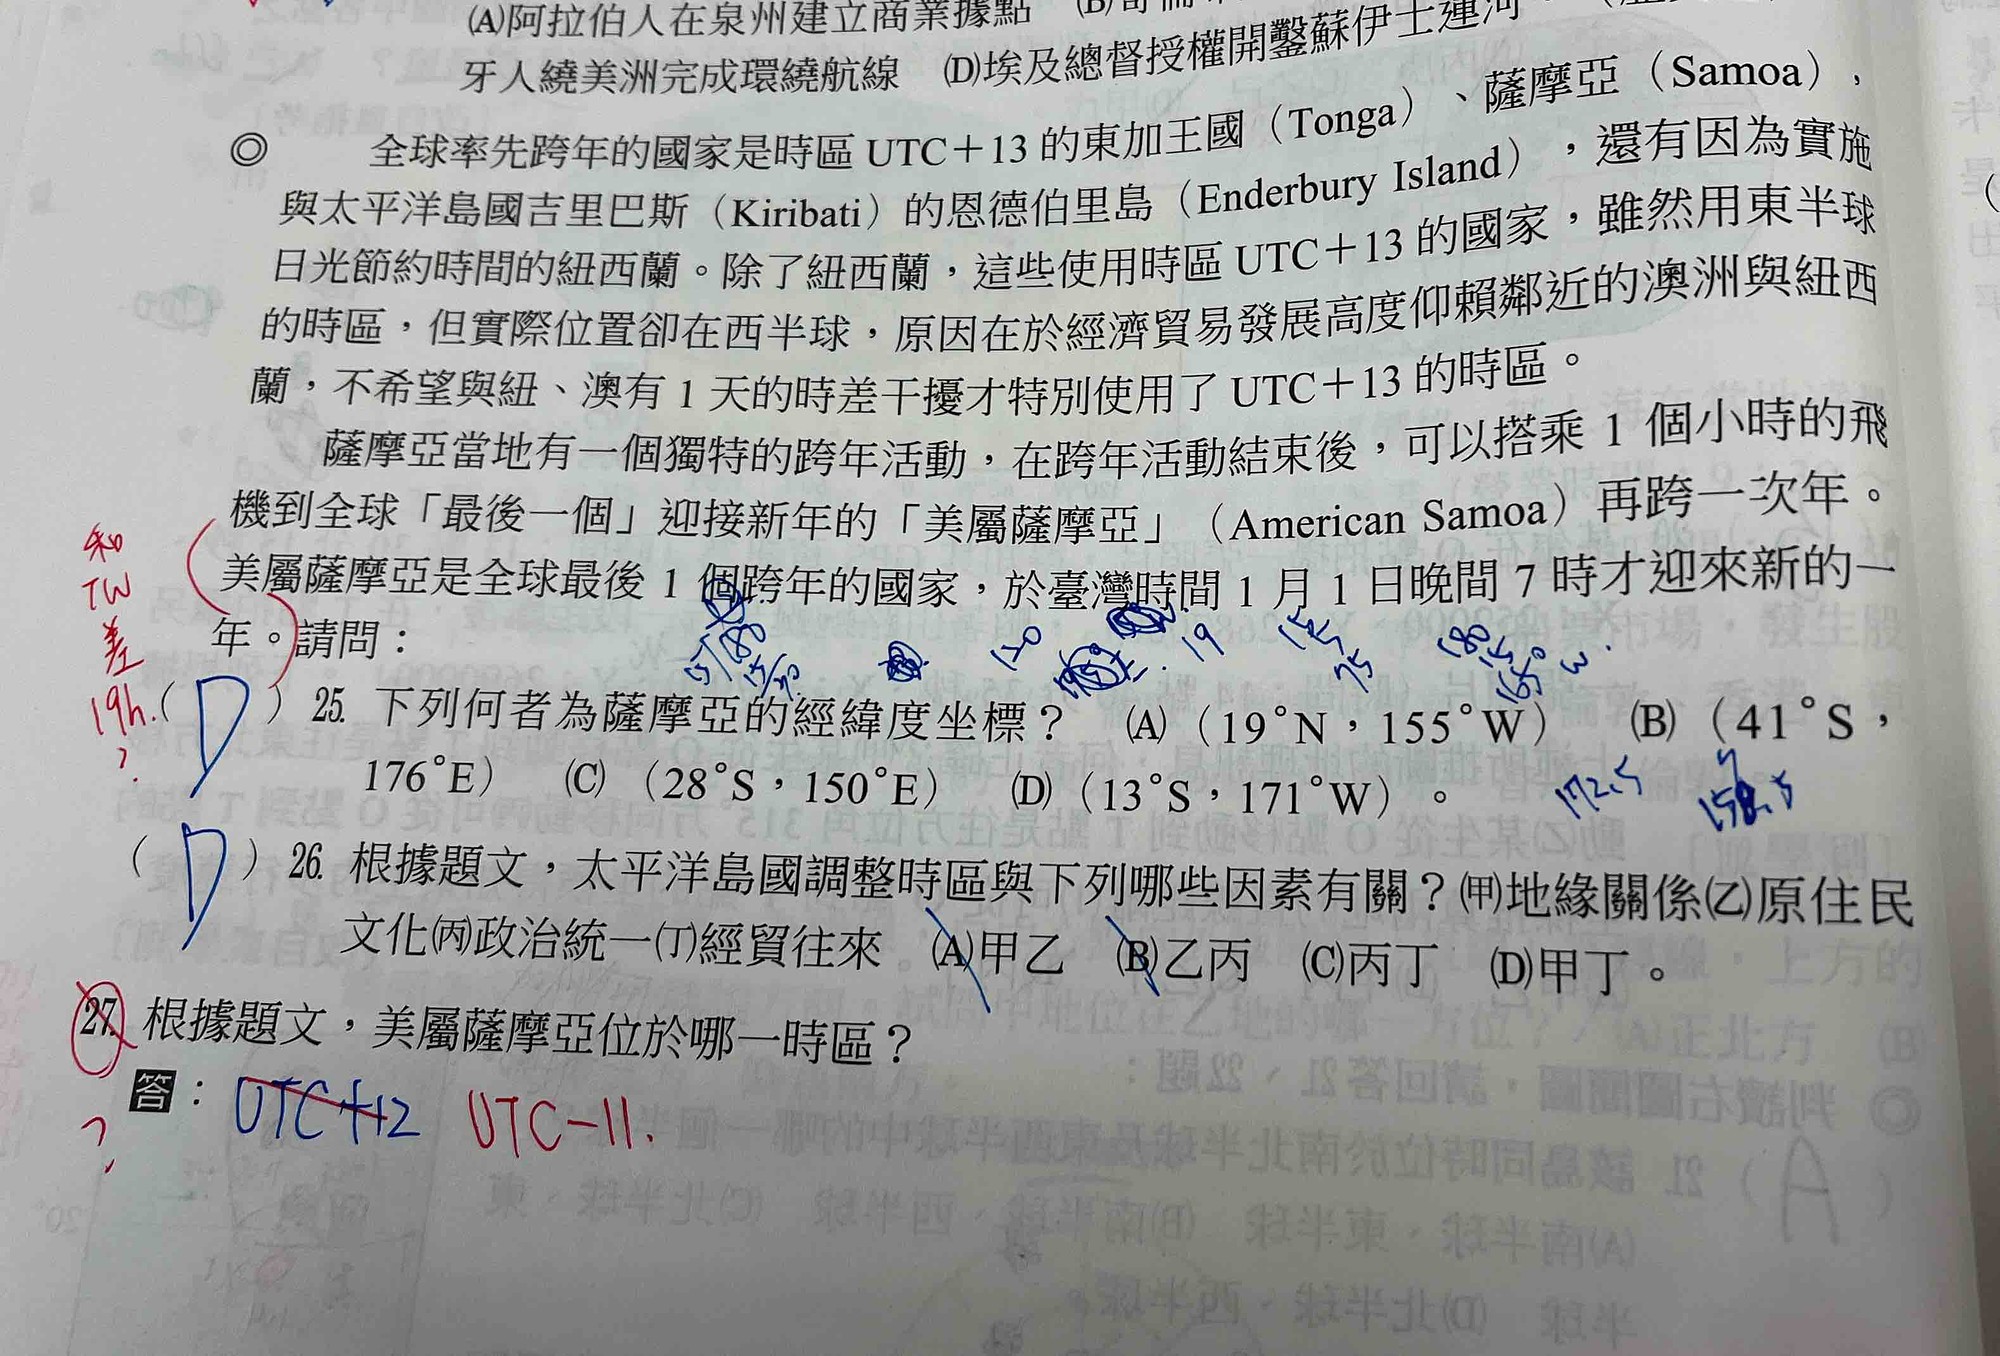 (A)阿拉伯人在泉州建立商業據點
牙人繞美洲完成環繞航線 (D)埃及總督授權開鑿蘇伊士運河。
◎ 全球率先跨年的國家是時區UTC＋13的東加王國（Tonga）、薩摩亞（Samoa），
與太平洋島國吉里巴斯（Kiribati）的恩德伯里島（Enderbury Island），還有因為實施
日光節約時間的紐西蘭。除了紐西蘭，這些使用時區UTC＋13的國家，雖然用東半球
的時區，但實際位置卻在西半球，原因在於經濟貿易發展高度仰賴鄰近的澳洲與紐西
蘭，不希望與紐、澳有1天的時差干擾才特別使用了UTC＋13的時區。
薩摩亞當地有一個獨特的跨年活動，在跨年活動結束後，可以搭乘1個小時的飛
機到全球「最後一個」迎接新年的「美屬薩摩亞」（American Samoa）再跨一次年。
美屬薩摩亞是全球最後1個跨年的國家，於臺灣時間1月1日晚間7時才迎來新的一
年。請問：
和
TW
差
19h.
?
120
19
75
（D）25. 下列何者為薩摩亞的經緯度坐標？ (A)（19°N，155°W） (B)（41°S，
176°E） (C)（28°S，150°E） (D)（13°S，171°W）。
172.5
（D）26. 根據題文，太平洋島國調整時區與下列哪些因素有關？(甲)地緣關係(乙)原住民
文化(丙)政治統一(丁)經貿往來 (A)甲乙 (B)乙丙 (C)丙丁 (D)甲丁。
27. 根據題文，美屬薩摩亞位於哪一時區？
答：UTC+12 UTC-11.
?